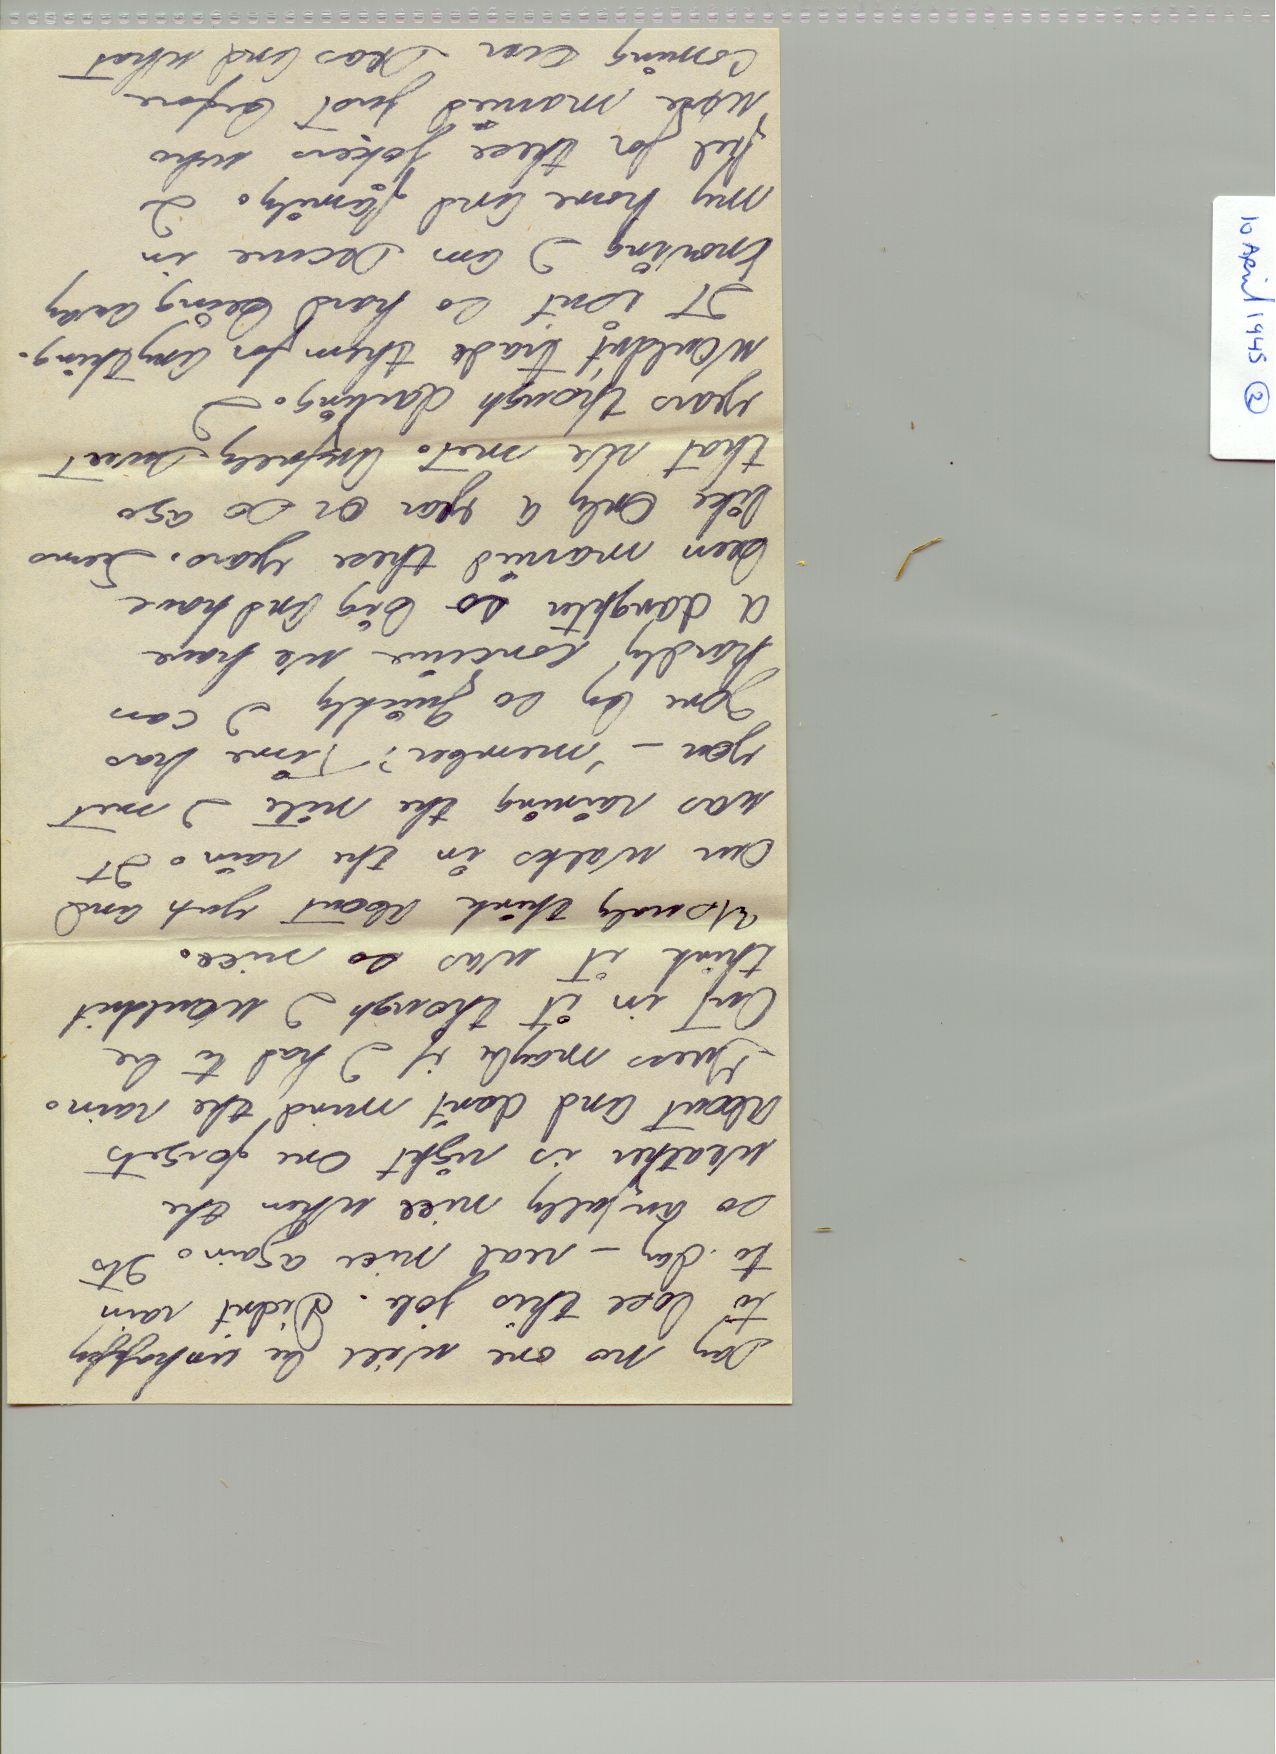 day no one will be unhappy
to lose this job. Didnt rain
to-day – real nice again. Its
so awfully nice when the
weather is right one forgets
about and don't mind the rain.
Guess maybe if I had to be
out in it though I wouldnt
think it was so nice.
Usualy think about you and
our walks in the rain. It
was raining the nite I met
you – 'member? Time has
gone by so quickly I can
hardly concieve we have
a daughter so big and have
been married three years. Seems
like only a year or so ago
that we met. Awfully sweet
years though darling. I
wouldn't trade them for anything.
It isnt so hard being away
knowing I am secure in
my home and family. I
feel for these jokers who
were married just before
coming over seas and what
10 April 1945 (2)